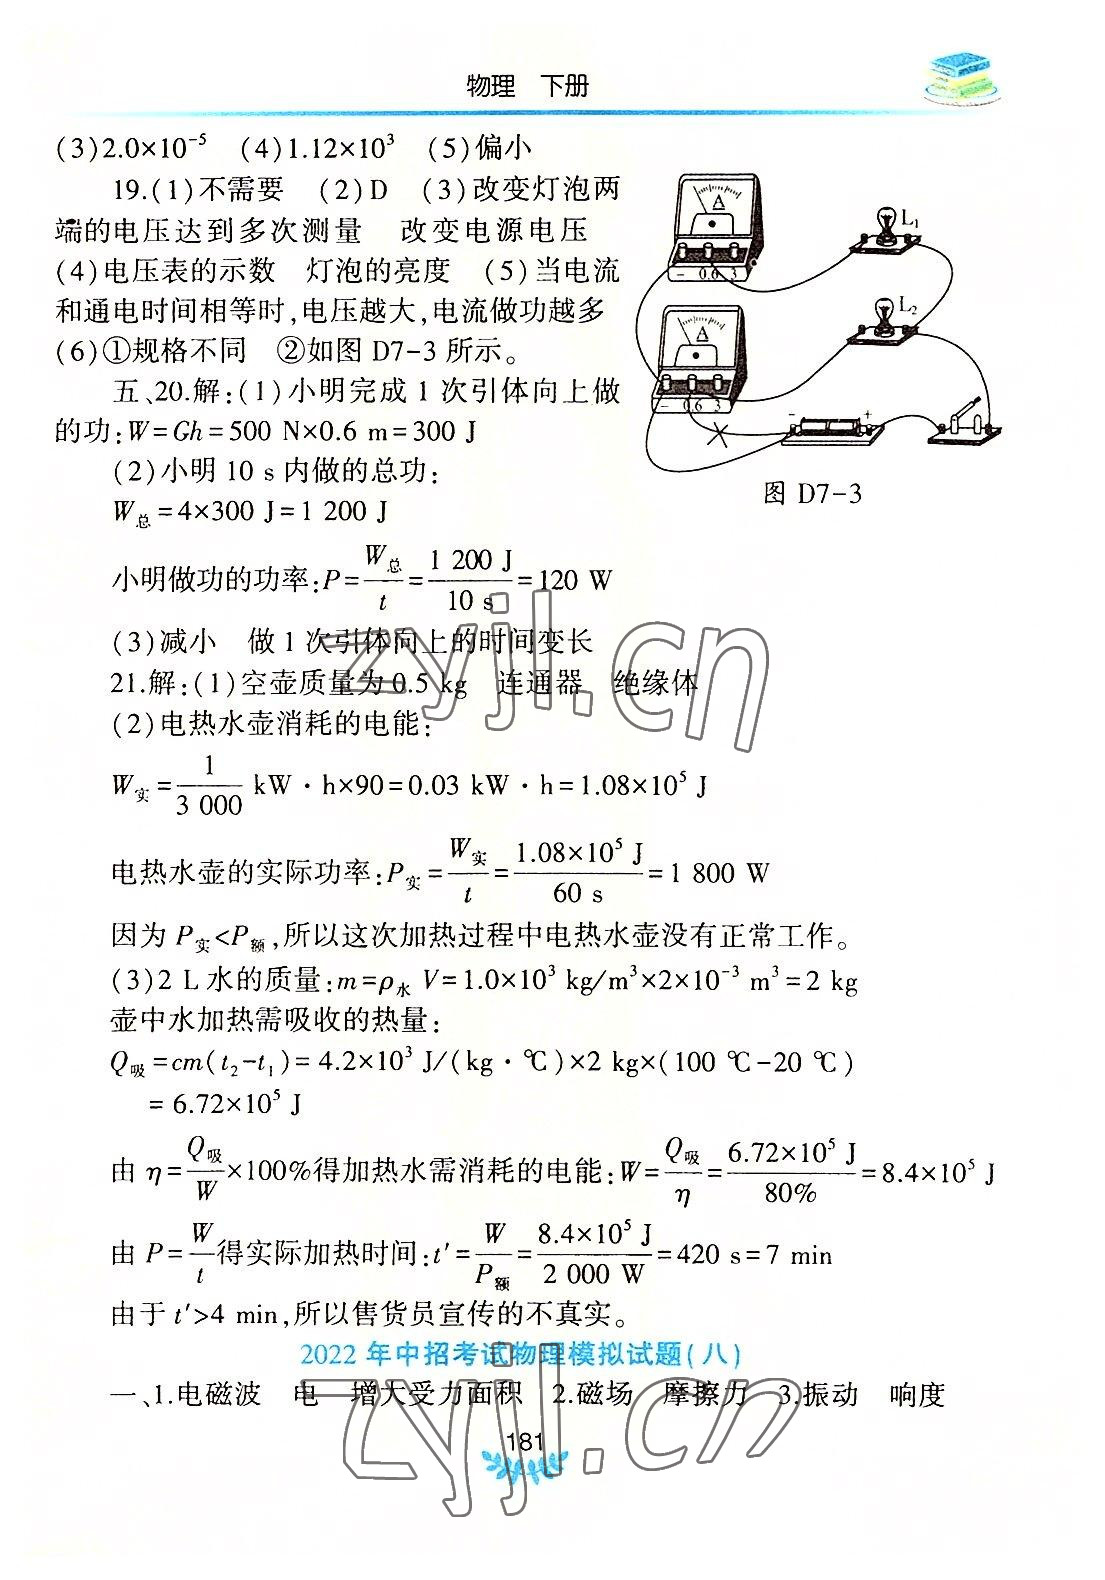 物理　下册
(3)2.0×10⁻⁵　(4)1.12×10³　(5)偏小
19.(1)不需要　(2)D　(3)改变灯泡两
端的电压达到多次测量　改变电源电压
(4)电压表的示数　灯泡的亮度　(5)当电流
和通电时间相等时,电压越大,电流做功越多
(6)①规格不同　②如图 D7-3 所示。
A
- 0.6 3
L₁
A
- 0.6 3
L₂
- +
图 D7-3
五、20.解:(1)小明完成 1 次引体向上做
的功:W=Gh=500 N×0.6 m=300 J
(2)小明 10 s 内做的总功:
W总=4×300 J=1 200 J
小明做功的功率:P=W总/t=1 200 J/10 s=120 W
(3)减小　做 1 次引体向上的时间变长
21.解:(1)空壶质量为 0.5 kg　连通器　绝缘体
(2)电热水壶消耗的电能:
W实=1/3 000 kW·h×90=0.03 kW·h=1.08×10⁵ J
电热水壶的实际功率:P实=W实/t=1.08×10⁵ J/60 s=1 800 W
因为 P实<P额,所以这次加热过程中电热水壶没有正常工作。
(3)2 L 水的质量:m=ρ水 V=1.0×10³ kg/m³×2×10⁻³ m³=2 kg
壶中水加热需吸收的热量:
Q吸=cm(t₂-t₁)=4.2×10³ J/(kg·℃)×2 kg×(100 ℃-20 ℃)
=6.72×10⁵ J
由 η=Q吸/W×100%得加热水需消耗的电能:W=Q吸/η=6.72×10⁵ J/80%=8.4×10⁵ J
由 P=W/t得实际加热时间:t′=W/P额=8.4×10⁵ J/2 000 W=420 s=7 min
由于 t′>4 min,所以售货员宣传的不真实。
2022 年中招考试物理模拟试题(八)
一、1.电磁波　电　增大受力面积　2.磁场　摩擦力　3.振动　响度
181
zyjl.cn
zyjl.cn